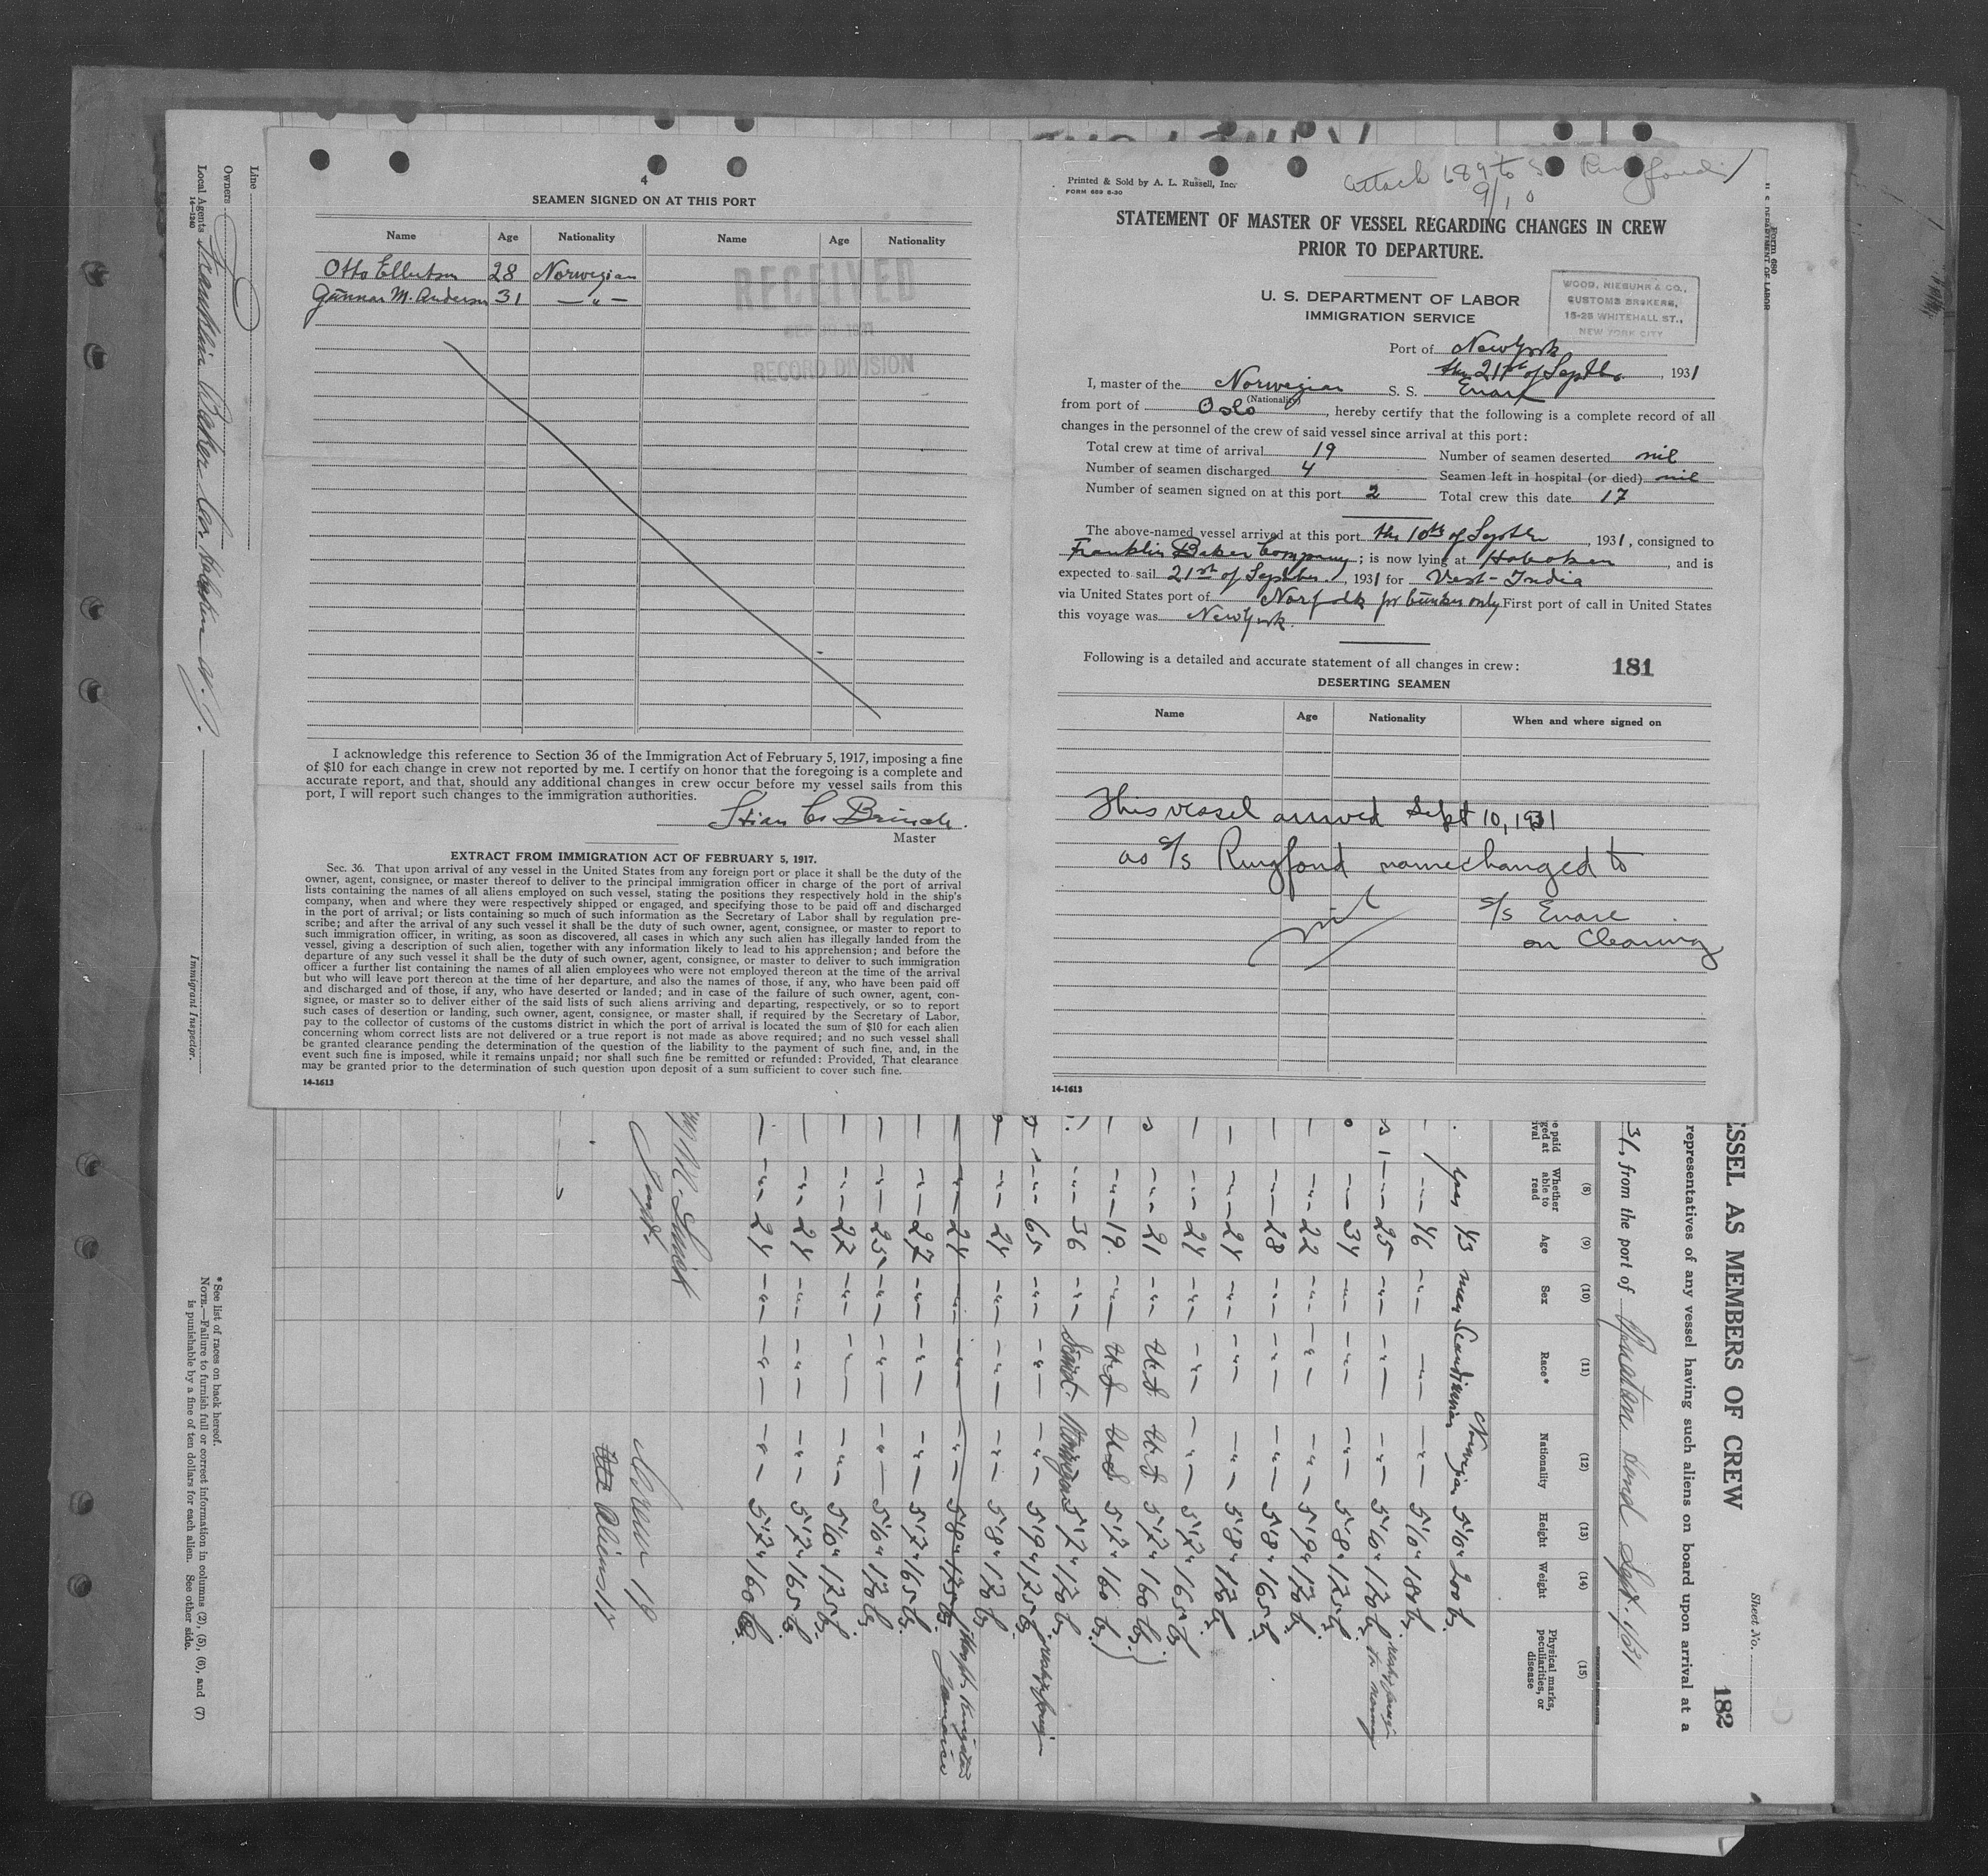 4
SEAMEN SIGNED ON AT THIS PORT
Name Age Nationality Name Age Nationality
Otto Ellertsen 28 Norwegian
Gunnar M. Andersen 31 — " —
RECEIVED
RECORD DIVISION
I acknowledge this reference to Section 36 of the Immigration Act of February 5, 1917, imposing a fine
of $10 for each change in crew not reported by me. I certify on honor that the foregoing is a complete and
accurate report, and that, should any additional changes in crew occur before my vessel sails from this
port, I will report such changes to the immigration authorities.
Master
EXTRACT FROM IMMIGRATION ACT OF FEBRUARY 5, 1917.
Sec. 36. That upon arrival of any vessel in the United States from any foreign port or place it shall be the duty of the
owner, agent, consignee, or master thereof to deliver to the principal immigration officer in charge of the port of arrival
lists containing the names of all aliens employed on such vessel, stating the positions they respectively hold in the ship's
company, when and where they were respectively shipped or engaged, and specifying those to be paid off and discharged
in the port of arrival; or lists containing so much of such information as the Secretary of Labor shall by regulation pre-
scribe; and after the arrival of any such vessel it shall be the duty of such owner, agent, consignee, or master to report to
such immigration officer, in writing, as soon as discovered, all cases in which any such alien has illegally landed from the
vessel, giving a description of such alien, together with any information likely to lead to his apprehension; and before the
departure of any such vessel it shall be the duty of such owner, agent, consignee, or master to deliver to such immigration
officer a further list containing the names of all alien employees who were not employed thereon at the time of the arrival
but who will leave port thereon at the time of her departure, and also the names of those, if any, who have been paid off
and discharged and of those, if any, who have deserted or landed; and in case of the failure of such owner, agent, con-
signee, or master so to deliver either of the said lists of such aliens arriving and departing, respectively, or so to report
such cases of desertion or landing, such owner, agent, consignee, or master shall, if required by the Secretary of Labor,
pay to the collector of customs of the customs district in which the port of arrival is located the sum of $10 for each alien
concerning whom correct lists are not delivered or a true report is not made as above required; and no such vessel shall
be granted clearance pending the determination of the question of the liability to the payment of such fine, and, in the
event such fine is imposed, while it remains unpaid; nor shall such fine be remitted or refunded: Provided, That clearance
may be granted prior to the determination of such question upon deposit of a sum sufficient to cover such fine.
14-1613
Attach 689 to SS Ringfond
9/10
Printed & Sold by A. L. Russell, Inc.
FORM 689 8-30
STATEMENT OF MASTER OF VESSEL REGARDING CHANGES IN CREW
PRIOR TO DEPARTURE.
U. S. DEPARTMENT OF LABOR
IMMIGRATION SERVICE
WOOD, NIEBUHR & CO.,
CUSTOMS BROKERS,
15-25 WHITEHALL ST.,
NEW YORK CITY
Port of New York
the 21st of Septbr. , 1931
I, master of the Norwegian S. S. Enare
(Nationality)
from port of Oslo , hereby certify that the following is a complete record of all
changes in the personnel of the crew of said vessel since arrival at this port:
Total crew at time of arrival 19 Number of seamen deserted nil
Number of seamen discharged 4 Seamen left in hospital (or died) nil
Number of seamen signed on at this port 2 Total crew this date 17
The above-named vessel arrived at this port the 10th of Septbr , 1931, consigned to
Franklin Baker Company ; is now lying at Hoboken , and is
expected to sail 21st of Septbr. , 1931 for Vest-India
via United States port of Norfolk for bunker only First port of call in United States
this voyage was New York.
Following is a detailed and accurate statement of all changes in crew: 181
DESERTING SEAMEN
Name Age Nationality When and where signed on
This vessel arrived Sept 10, 1931
as s/s Ringfond name changed to
s/s Enare
on Clearing
nil
14-1613
Line
Owners
Local Agents Franklin Baker Co. Hoboken N.J.
14-1240
Immigrant Inspector.
Form 680
U. S. DEPARTMENT OF LABOR
Sheet No.
182
ESSEL AS MEMBERS OF CREW
representatives of any vessel having such aliens on board upon arrival at a
31, from the port of Sept. 1/31
(8) (9) (10) (11) (12) (13) (14) (15)
Whether able to read Age Sex Race* Nationality Height Weight Physical marks, peculiarities, or disease
yes 43 men Scandinavian Norwegian 5'10" 200 lbs.
— " — 46 — " — — " — — " — 5'10" 180 lbs.
— " — 25 — " — — " — — " — 5'10" 170 lbs.
— " — 34 — " — — " — — " — 5'8" 175 lbs.
— " — 22 — " — — " — — " — 5'9" 170 lbs.
— " — 28 — " — — " — — " — 5'8" 165 lbs.
— " — 24 — " — — " — — " — 5'8" 170 lbs.
— " — 24 — " — — " — — " — 5'7" 165 lbs.
— " — 21 — " — U.S. U.S. 5'7" 160 lbs.
— " — 19 — " — U.S. U.S. 5'7" 160 lbs.
— " — 36 — " — Scand. Norwegian 5'7" 170 lbs.
— " — 65 — " — — " — — " — 5'9" 175 lbs.
— " — 24 — " — — " — — " — 5'8" 170 lbs.
— " — 24 — " — — " — — " — 5'8" 175 lbs. Kingston Jamaica
— " — 27 — " — — " — — " — 5'7" 165 lbs.
— " — 25 — " — — " — — " — 5'10" 170 lbs.
— " — 27 — " — — " — — " — 5'10" 175 lbs.
— " — 24 — " — — " — — " — 5'7" 165 lbs.
— " — 24 — " — — " — — " — 5'7" 160 lbs.
Crew 19
Aliens 17
*See list of races on back hereof.
NOTE.—Failure to furnish full or correct information in columns (2), (5), (6), and (7)
is punishable by a fine of ten dollars for each alien. See other side.